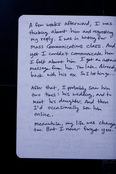 A few weeks afterward, I was
thinking about him and regretting
my reply. I was in  for
Mass Communications class. And
yet I couldn't communicate how
I felt about him. I got an
message from him too late. Already
back with his ex. So I let go...
After that, I probably saw him
two times: his wedding, and to
meet his daughter. And then
I'd occasionally see him
online.
Meanwhile, my life was changing
too. But I never forgot you.